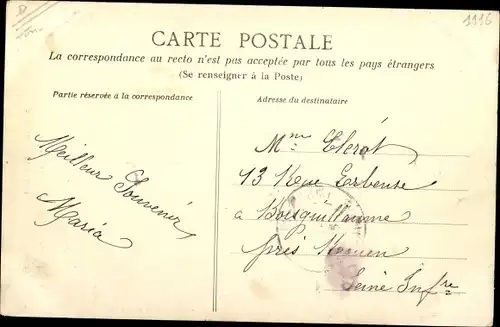 1116
CARTE POSTALE
La correspondance au recto n'est pas acceptée par tous les pays étrangers
(Se renseigner à la Poste)
Partie réservée à la correspondance
Adresse du destinataire
Meilleur Souvenir
Maria
Mme Clerót
13 Rue Herbeuse
à Boisguillaume
près Rouen
Seine Infre